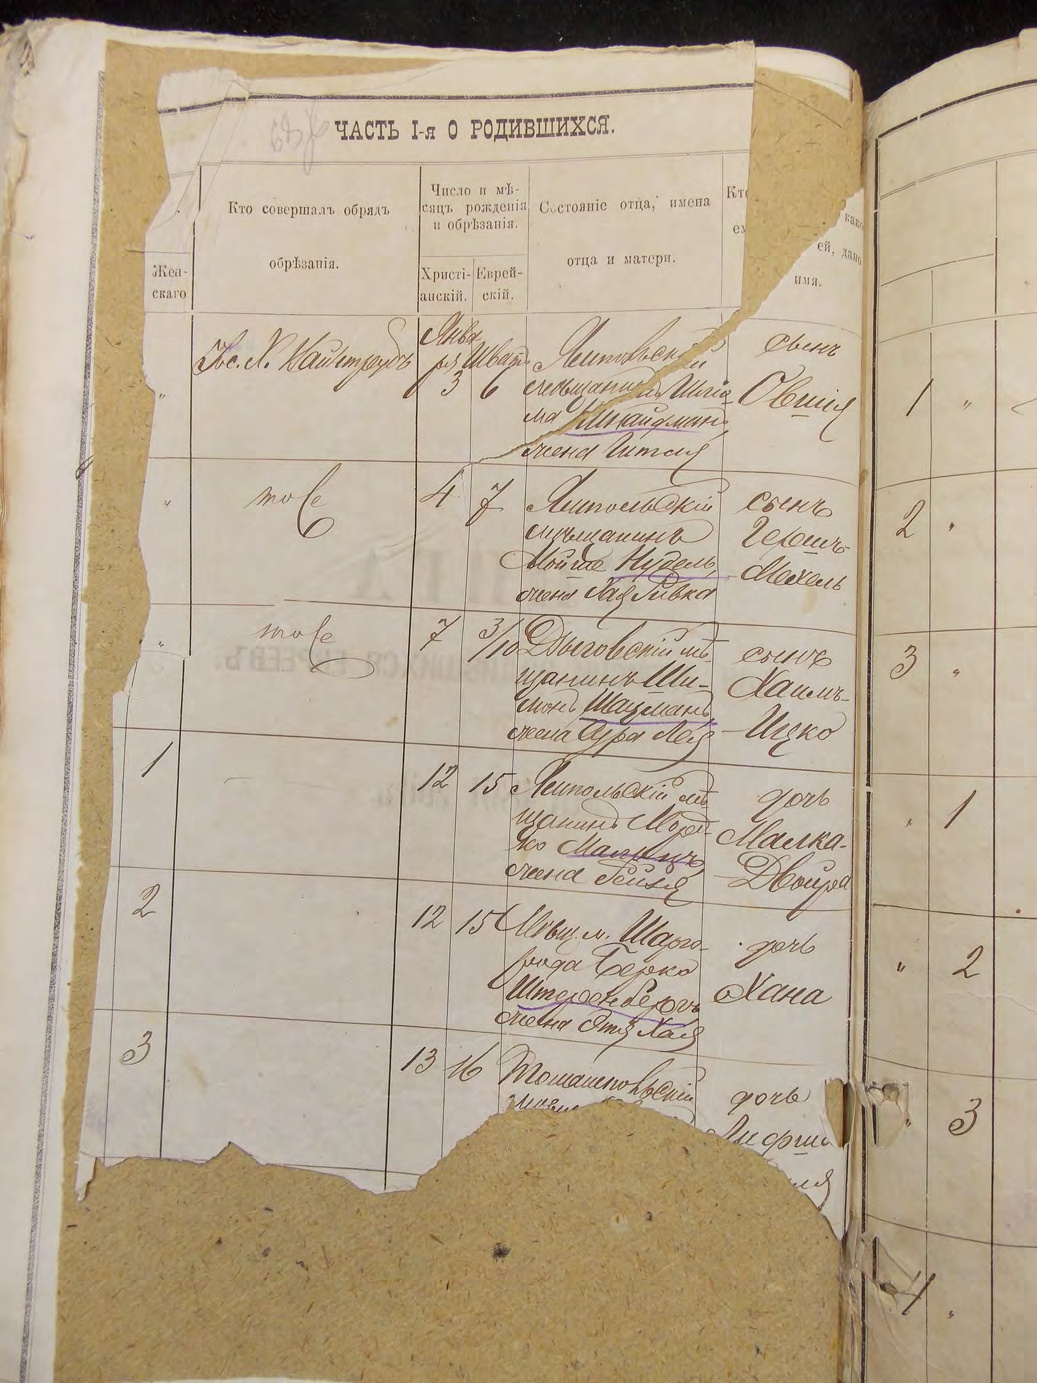 ЧАСТЬ I-я О РОДИВШИХСЯ.
Жен-
скаго
Кто совершалъ обрядъ
обрѣзанія.
Число и мѣ-
сяцъ рожденія
и обрѣзанія.
Христі-
анскій.
Еврей-
скій.
Состояніе отца, имена
отца и матери.
Кто
ей, дано
имя.
Янва
ря Шватъ
3 6
Ямпольскій
мѣщанинъ
жена
сынъ
Овшія
тоже
4 7
Ямпольскій
мѣщанинъ
Мошне Нудель
жена Хая Ривка
сынъ
Гершъ-
Мехель
тоже
7 3/10
Дзыговскій мѣ-
щанинъ Ши-
монъ Шацманъ
жена Сура Лея
сынъ
Хаимъ-
Ицко
1
12 15
Ямпольскій мѣ-
щанинъ Морд-
ко
жена Рейзя
дочь
Малка-
Двойра
2
12 15
Мѣщ. м. Шарго-
рода Берко
Штеренбергъ
жена Этя Хая
дочь
Хана
3
13 16
Томашпольскій
дочь
1 "
2 "
3 "
" 1
" 2
" 3
4 "